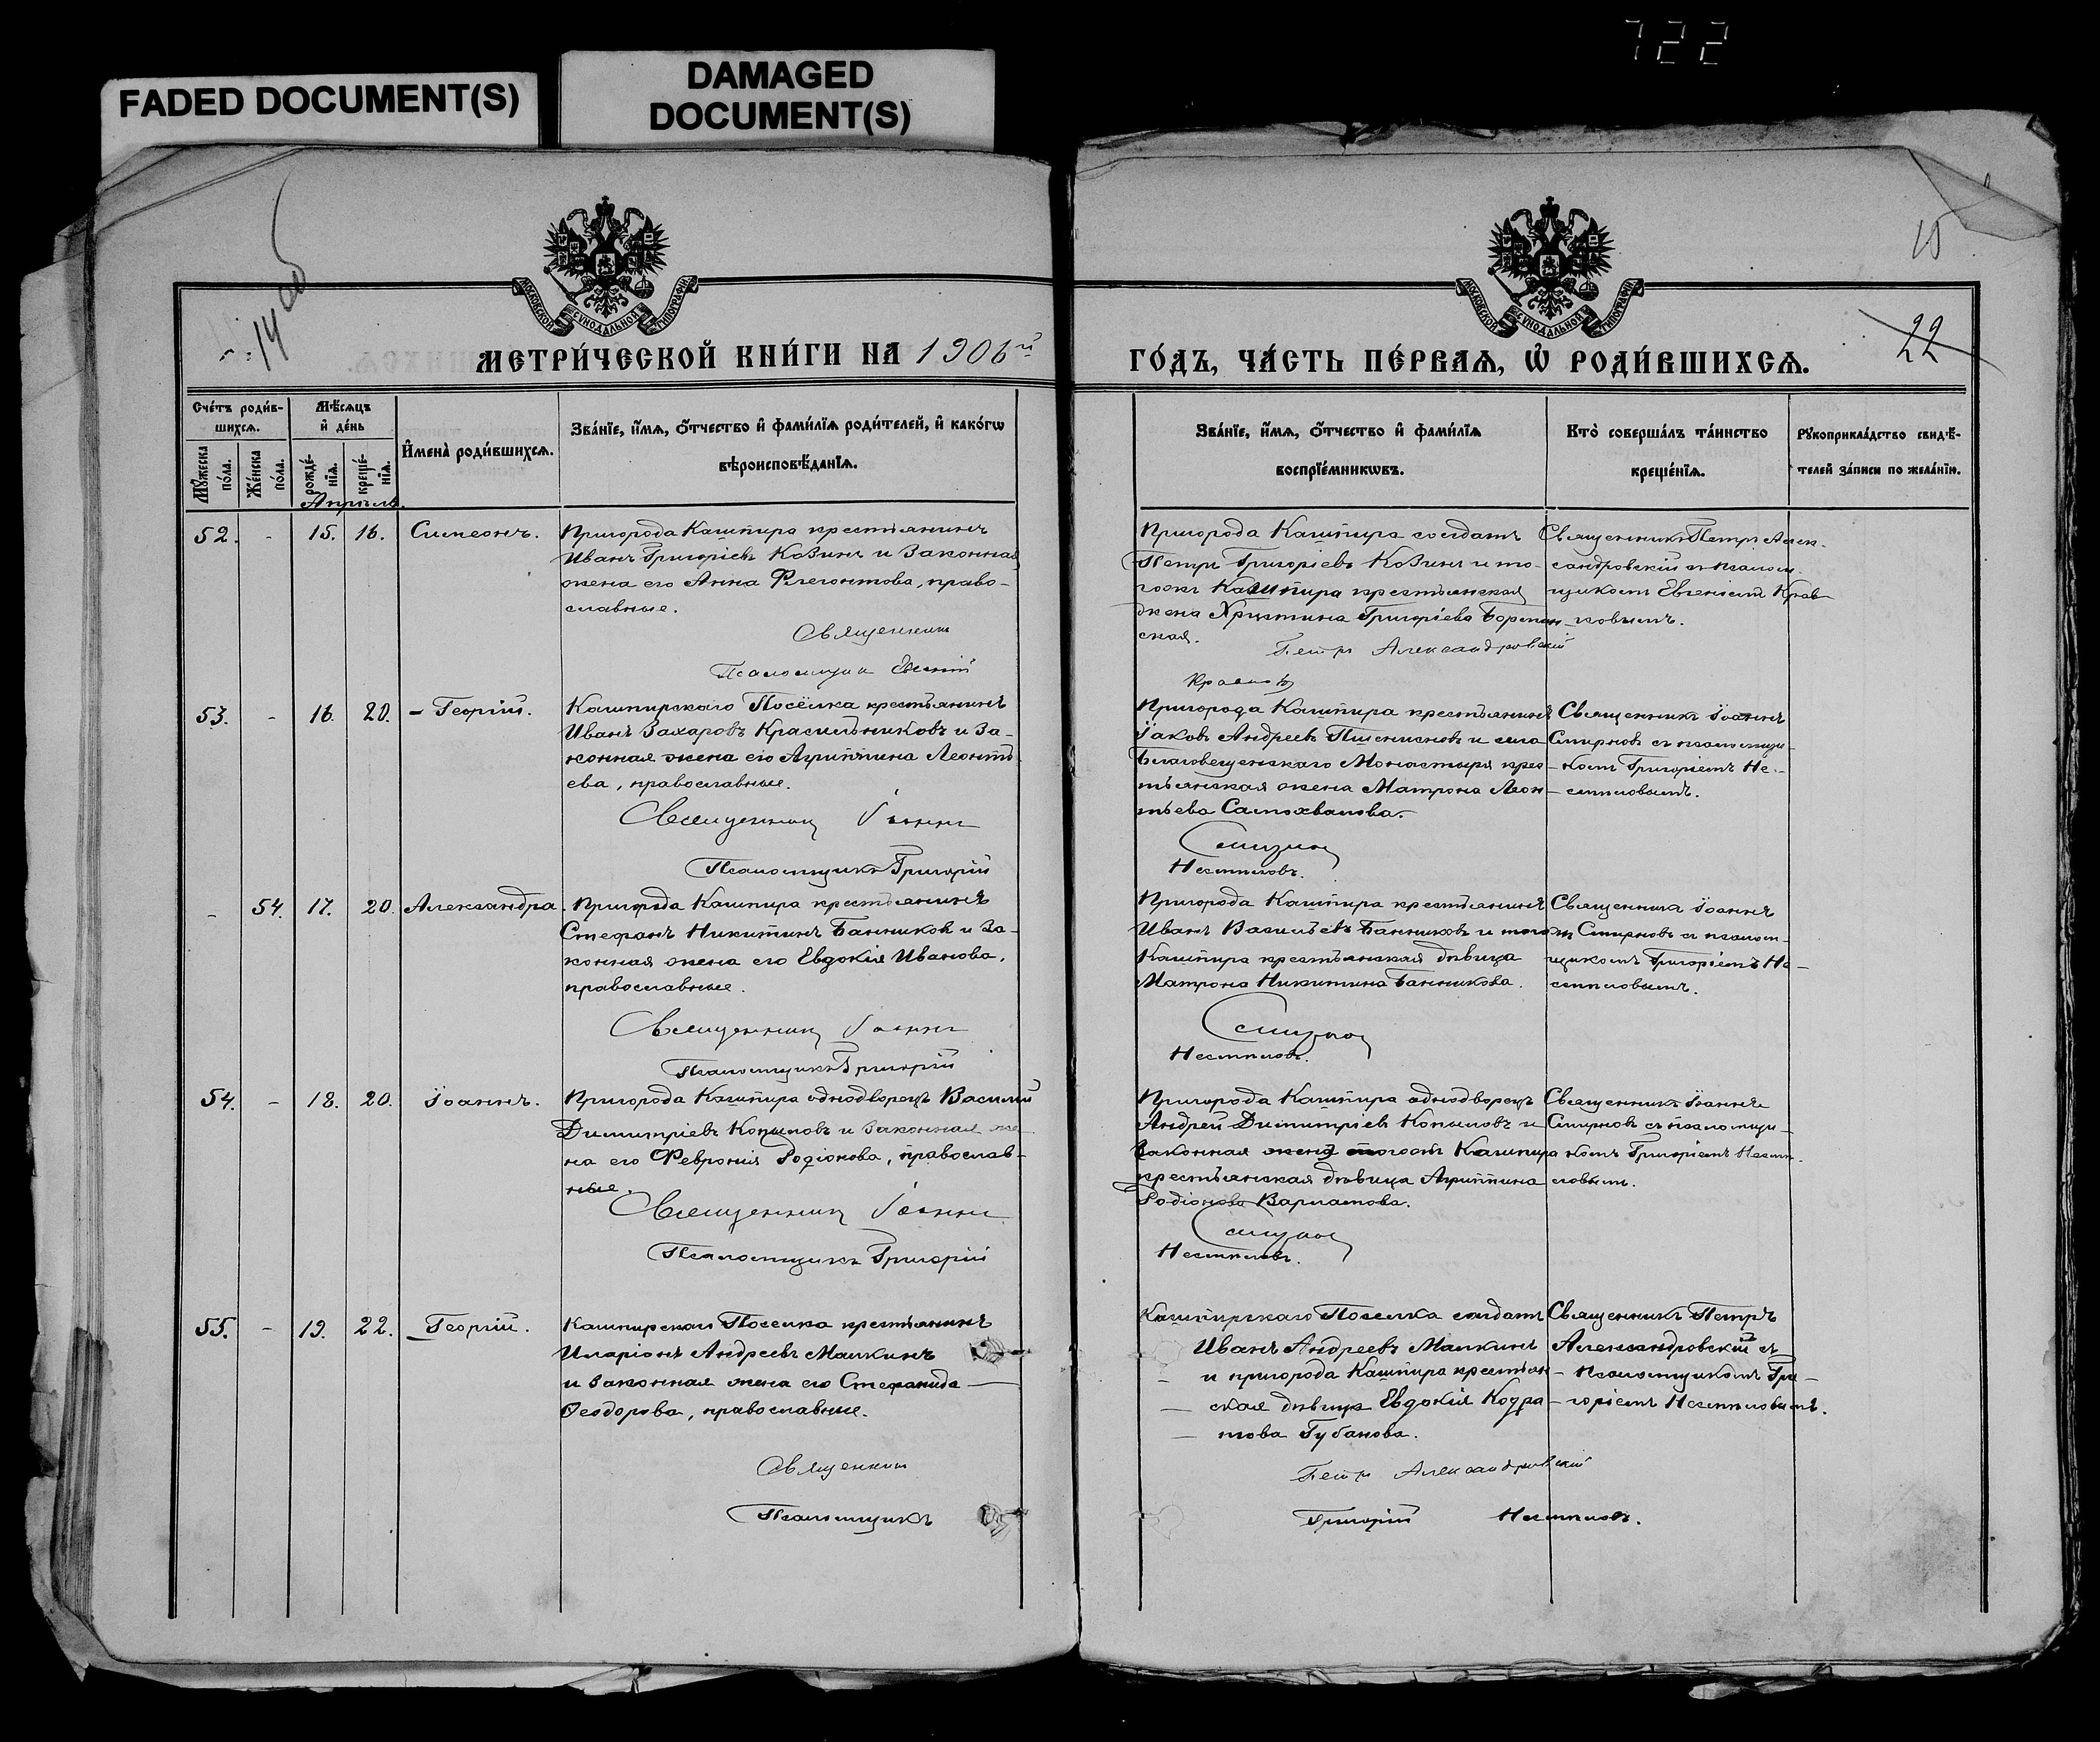 722
FADED DOCUMENT(S)
DAMAGED
DOCUMENT(S)
15
22
МОСКОВСКОЙ СѴНОДАЛЬНОЙ ТИПОГРАФІИ
МОСКОВСКОЙ СѴНОДАЛЬНОЙ ТИПОГРАФІИ
МЕТРИ́ЧЕСКОЙ КНИ́ГИ НА 1906й
ГО́ДЪ, ЧА́СТЬ ПЕ́РВАѦ, Ѡ҆ РОДИ́ВШИХСѦ.
Сче́тъ роди́в-
шихсѧ.
Мꙋ́жеска
по́ла.
Же́нска
по́ла.
Мѣ́сѧцъ
и҆ де́нь
рожде́-
нїѧ.
креще́-
нїѧ.
И҆мена̀ роди́вшихсѧ.
Зва́нїе, и҆́мѧ, ѻ҆́тчество и҆ фами́лїѧ роди́телей, и҆ како́гѡ
вѣроисповѣ́данїѧ.
Зва́нїе, и҆́мѧ, ѻ҆́тчество и҆ фами́лїѧ
воспрїе́мникѡвъ.
Кто̀ соверша́лъ та́инство
креще́нїѧ.
Рꙋкоприкла́дство свидѣ́-
телей за́писи по жела́нїю.
Апрѣль.
52. - 15. 16. Симеонъ.
Пригорода Кашпира крестьянинъ
Иванъ Григоріевъ Козинъ и законная
жена его Анна Флегонтова, право-
славные.
Священникъ
Псаломщикъ Евгеній
Пригорода Кашпира солдатъ
Петръ Григоріевъ Козинъ и то-
гожъ Кашпира крестьянская
жена Христина Григоріева Борман-
ская.
Петръ Александровскій
Кравков
Священникъ Петръ Алек-
сандровскій съ псалом-
щикомъ Евгеніемъ Крав-
ковымъ.
53. - 16. 20. - Георгій.
Кашпирскаго Посёлка крестьянинъ
Иванъ Захаровъ Красильниковъ и за-
конная жена его Агриппина Леонть-
ева, православные.
Священникъ Іоаннъ
Псаломщикъ Григорій
Пригорода Кашпира крестьянинъ
Іаковъ Андреевъ Пшенисновъ и села
Благовещенскаго Монастыря крес-
тьянская жена Матрона Леон-
тьева Самохвалова.
Смирнов
Несмеловъ.
Священникъ Іоаннъ
Смирновъ съ псаломщи-
комъ Григоріемъ Не-
смеловымъ.
- 54. 17. 20. Александра.
Пригорода Кашпира крестьянинъ
Стефанъ Никитинъ Банниковъ и за-
конная жена его Евдокія Иванова,
православные.
Священникъ Іоаннъ
Псаломщикъ Григорій
Пригорода Кашпира крестьянинъ
Иванъ Васильевъ Банниковъ и тогожъ
Кашпира крестьянская дѣвица
Матрона Никитина Банникова.
Смирнов
Несмеловъ.
Священникъ Іоаннъ
Смирновъ съ псалом-
щикомъ Григоріемъ Не-
смеловымъ.
54. - 18. 20. Іоаннъ.
Пригорода Кашпира однодворецъ Василій
Димитріевъ Копыловъ и законная же-
на его Феврония Родіонова, православ-
ные.
Священникъ Іоаннъ
Псаломщикъ Григорій
Пригорода Кашпира однодворецъ
Андрей Димитріев Копыловъ и
законная жена тогожъ Кашпира
крестьянская дѣвица Агриппина
Родіонова Варламова.
Смирнов
Несмеловъ.
Священникъ Іоаннъ
Смирновъ съ псаломщи-
комъ Григоріемъ Несме-
ловым.
55. - 19. 22. Георгій.
Кашпирскаго Поселка крестьянинъ
Иларіонъ Андреевъ Малкинъ
и законная жена его Стефанида
Ѳеодорова, православные.
Священникъ
Псаломщикъ
Кашпирскаго Поселка солдатъ
Иванъ Андреевъ Малкинъ
и пригорода Кашпира крестьян-
ская дѣвица Евдокія Кодра-
това Губанова.
Петръ Александровскій
Григорій Несмеловъ.
Священникъ Петръ
Александровскій съ
псаломщикомъ Гри-
горіемъ Несмеловымъ.